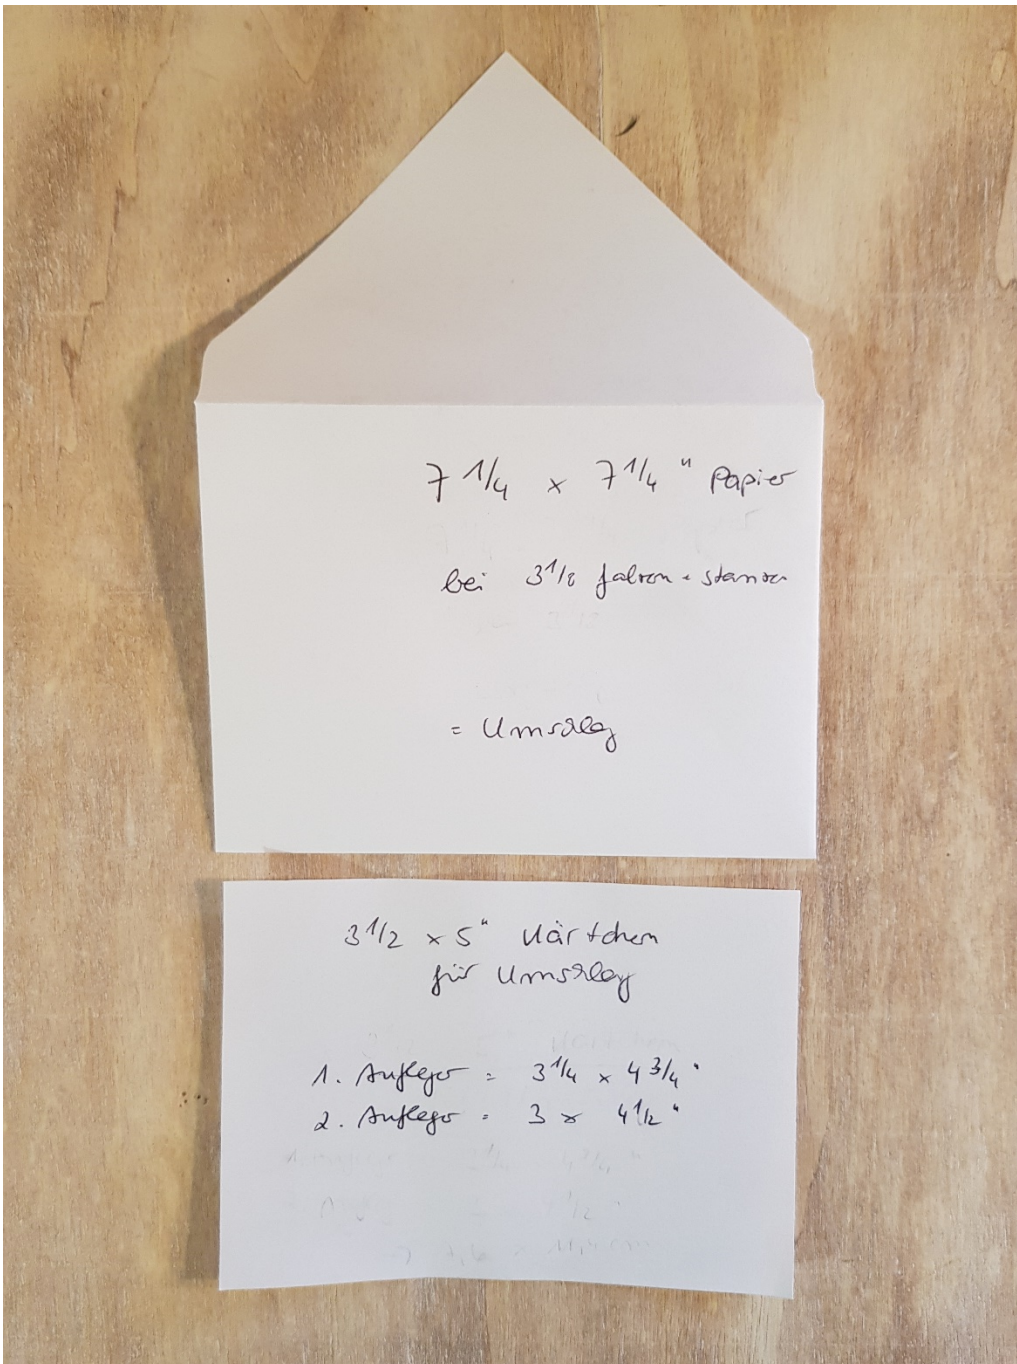 7 1/4 x 7 1/4 " Papier
bei 3 1/8 falzen + stanzen
= Umschlag
3 1/2 x 5" Kärtchen
für Umschlag
1. Aufleger = 3 1/4 x 4 3/4 "
2. Aufleger = 3 x 4 1/2 "